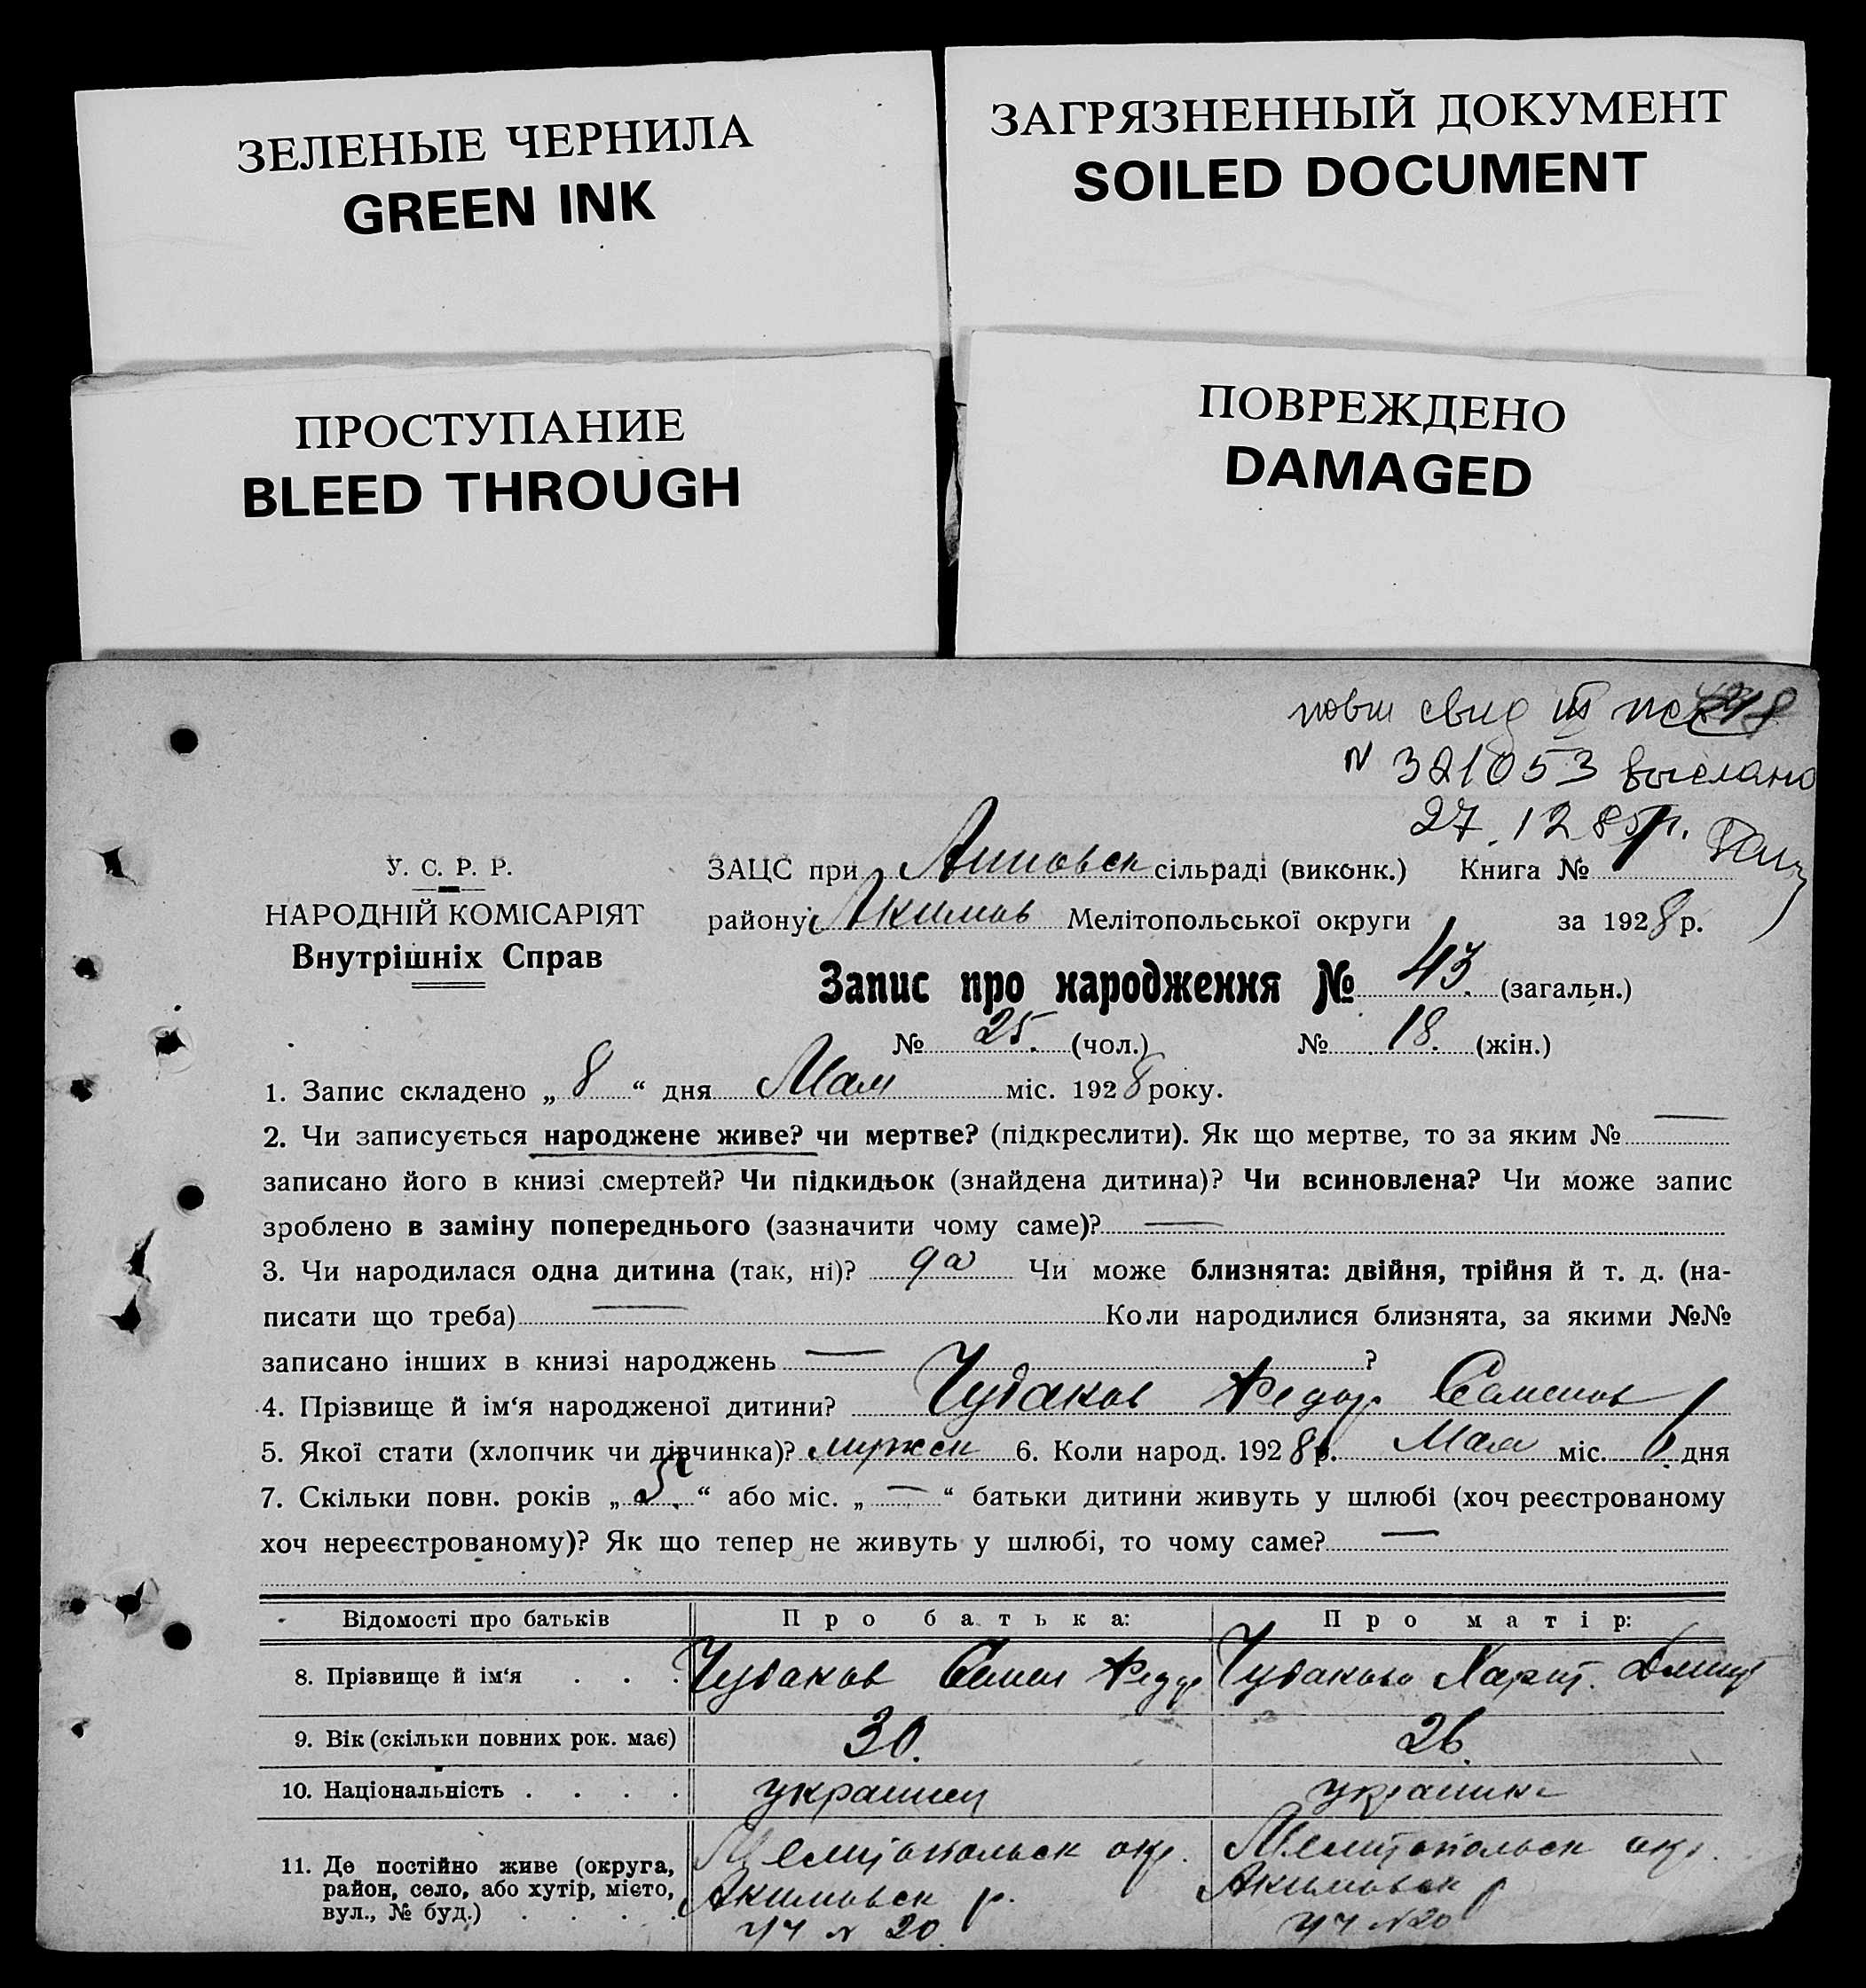 ЗЕЛЕНЫЕ ЧЕРНИЛА
GREEN INK
ЗАГРЯЗНЕННЫЙ ДОКУМЕНТ
SOILED DOCUMENT
ПРОСТУПАНИЕ
BLEED THROUGH
ПОВРЕЖДЕНО
DAMAGED
повт свид
N 321053 выслано
27.12
У. С. Р. Р.
НАРОДНІЙ КОМІСАРІЯТ
Внутрішніх Справ
ЗАЦС при Анновск сільраді (виконк.) Книга №
району Якимов Мелітопольської округи за 1928 р.
Запис про народження № 43. (загальн.)
№ 25. (чол.) № 18. (жін.)
1. Запис складено „ 8 “ дня Мая міс. 1928 року.
2. Чи записується народжене живе? чи мертве? (підкреслити). Як що мертве, то за яким № —
записано його в книзі смертей? Чи підкидьок (знайдена дитина)? Чи всиновлена? Чи може запис
зроблено в заміну попереднього (зазначити чому саме)? —
3. Чи народилася одна дитина (так, ні)? да Чи може близнята: двійня, трійня й т. д. (на-
писати що треба) — Коли народилися близнята, за якими №№
записано інших в книзі народжень — ?
4. Прізвище й ім‘я народженої дитини? Чудаков Федор Семенов
5. Якої стати (хлопчик чи дівчинка)? мужск 6. Коли народ. 1928 р. Мая міс. дня
7. Скільки повн. років „ “ або міс. „ — “ батьки дитини живуть у шлюбі (хоч реєстрованому
хоч нереєстрованому)? Як що тепер не живуть у шлюбі, то чому саме? —
Відомості про батьків Про батька: Про матір:
8. Прізвище й ім‘я . . . Чудаков Семен Федор Чудакова Харит. Дмит
9. Вік (скільки повних рок. має) 30. 26.
10. Національність . . . . украинец украинка
11. Де постійно живе (округа, Мелитопольск окр. Мелитопольск окр.
район, село, або хутір, місто, Акимовск р. Акимовск р
вул., № буд.) . . . . уч N 20. уч N 20